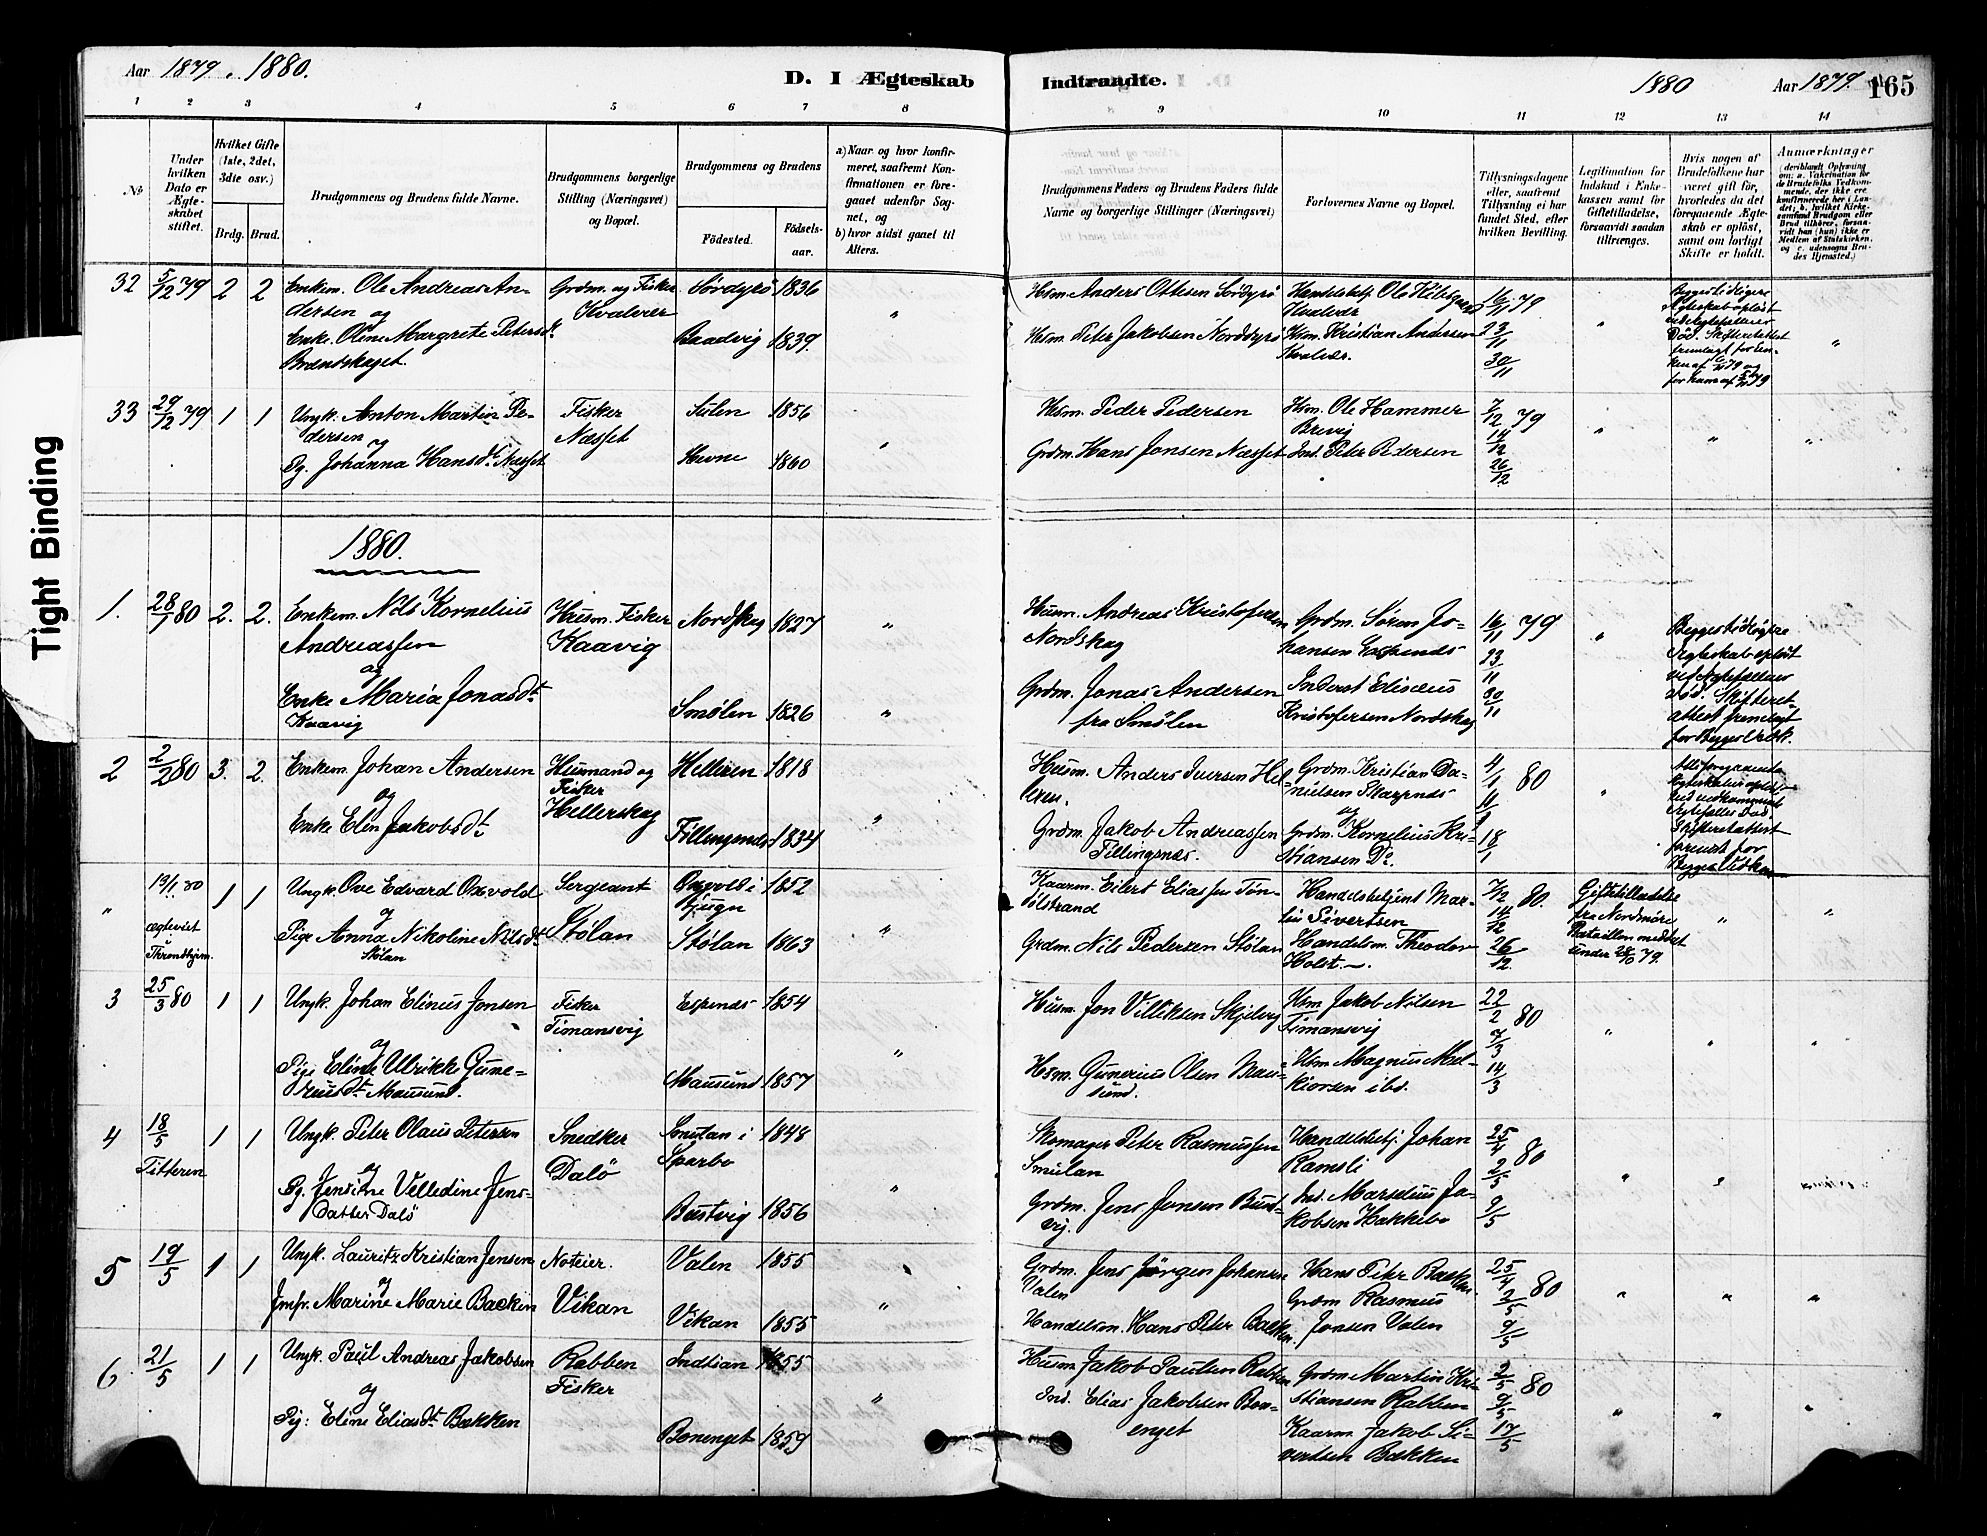 Aar 1879. 1880.
D. I Ægteskab
Indtraadte.
1880
Aar 1879.
165
Tight Binding
1 2 3 4 5 6 7 8
9 10 11 12 13 14
No
Under hvilken Dato er Ægteskabet stiftet.
Hvilket Gifte (1ste, 2det, 3die osv.)
Brdg. Brud.
Brudgommens og Brudens fulde Navne.
Brudgommens borgerlige Stilling (Næringsvei) og Bopæl.
Brudgommens og Brudens
Fødested.
Fødselsaar.
a) Naar og hvor konfirmeret, saafremt Konfirmationen er foregaaet udenfor Sognet, og
b) hvor sidst gaaet til Alters.
Brudgommens Faders og Brudens Faders fulde Navne og borgerlige Stillinger (Næringsvei)
Forlovernes Navne og Bopæl.
Tillysningsdagene eller, saafremt Tillysning ei har fundet Sted, efter hvilken Bevilling.
Legitimation for Indskud i Enkekassen samt for Giftetilladelse, forsaavidt saadan tiltrænges.
Hvis nogen af Brudefolkene har været gift før, hvorledes da det foregaaende Ægteskab er opløst, samt om lovligt Skifte er holdt.
Anmærkninger
32 5/12 79 2 2
Enkem. Ole Andreas Andersen og
Enke. Oline Margrete Petersdt.
Brandskaget.
Grdm. og Fisker
Kvalvær
Sørdyrø 1836
Baadvig 1839.
Hsm. Anders Ottesen Sørdyrø
Hsm. Peter Jakobsen Norddyrø
Kvalvær
Hsm. Kristian Andersen
Kvalvær.
16/11 79
23/11
30/11
33 29/12 79 1 1
Ungk. Anton Martin Pedersen
og
Pg. Johanna Hansdt. Næsset
Fisker
Næsset
Sulen 1856
Hevne 1860
Hsm. Peder Pedersen
Grdm. Hans Jonsen Næsset
Hsm. Ole Hammer
Brevig
Ind. Peter Pedersen
7/12 79
14/12
26/12
1880.
1. 28/1 80 2. 2.
Enkem. Nils Kornelius
Andreassen
og
Enke Maria Jonasdt.
Kaavig
Husm. Fisker
Kaavig
Nordskag 1827
Smølen 1826
Husm. Andreas Kristofersen
Nordskag
Grdm. Jonas Andersen
fra Smølen
Grdm. Søren Johansen Espends
Inderst Elisæus
Kristofersen Nordskag
16/11 79
23/11
30/11
Begges tidligere
Ægteskab opløst
ved Ægtefællens
Død. Skifteretsattest fremlagt
for Begges Vedk.
2 2/2 80 3. 2.
Enkem. Johan Andersen
og
Enke Elen Jakobsdt.
Husmand og
Fisker
Hellerskag
Helleren 1818
Fillingsnds 1834
Husm. Anders Iversen Helleren.
Grdm. Jakob Andreassen
Fillingsnæs.
Grdm. Kristian Danielsen Skarpnds
og
Grdm. Kornelius Kristiansen Do.
4/1 80
11/1
18/1
" 13/1 80 1 1
ægteviet
i
Throndhjem.
Ungk. Ove Edvard Oxvold
og
Pige Anna Nikoline Nilsdt.
Stølan
Sergeant
Stølan
Oxvold i
Bjugn 1852
Stølan 1863
Kaarm. Eilert Eliassen
Grdm. Nils Pedersen Stølan
Handelsbetjent Martin Sivertsen
Handelsm. Theodor
Holst.
7/12 80.
14/12
26/12
Giftetilladelse
fra Nordmøre
Bataillon meddelt
under 28/10 79.
3 25/3 80 1 1
Ungk. Johan Elinus Jonsen
og
Pige Eline Ulrikke Gunereusdt. Mausund.
Fisker
Timansvig
Espends 1854
Mausund 1857
Husm. Jon Villiksen Skjelvg
Hsm. Gunerius Olsen Mausund.
Hsm. Jakob Nilsen
Timansvig
Hsm Magnus Melkiorsen ibd.
22/2 80
7/3
14/3
4 18/5 1 1
Titteren
Ungk. Peter Olaus Petersen
og
Pg. Jensine Velledine Jensdatter Dalø
Snedker
Dalø
Smulan i
Sparbo 1848
Bustvig 1856
Skomager Peter Rasmussen
Smulan
Grdm. Jens Jonsen Bustvig.
Handelsbetj. Johan
Ramsli
Ind. Marselius Jakobsen Hakkebo
25/4 80
2/5
9/5
5 19/5 1 1
Ungk. Lauritz Kristian Jensen
og
Jmfr. Marine Marie Backen
Noteier.
Vikan
Valen 1855
Vikan 1855
Grdm. Jens Jørgen Johansen
Valen
Handelsm. Hans Peter Bakken.
Hans Peter Bakken
Grdm Rasmus
Jonsen Valen
25/4 80
2/5
9/5
6 21/5 1 1
Ungk. Paul Andreas Jakobsen
og
Pig: Eline Eliasdt. Bakken
Rabben
Fisker
Indtian 1855
Bonenget 1859
Husm Jakob Paulsen Rabben
Ind. Elias Jakobsen Bonenget
Grdm Martin Kristiansen Rabben
Kaarm. Jakob Sivertsen Bakken
2/5 80
9/5
17/5